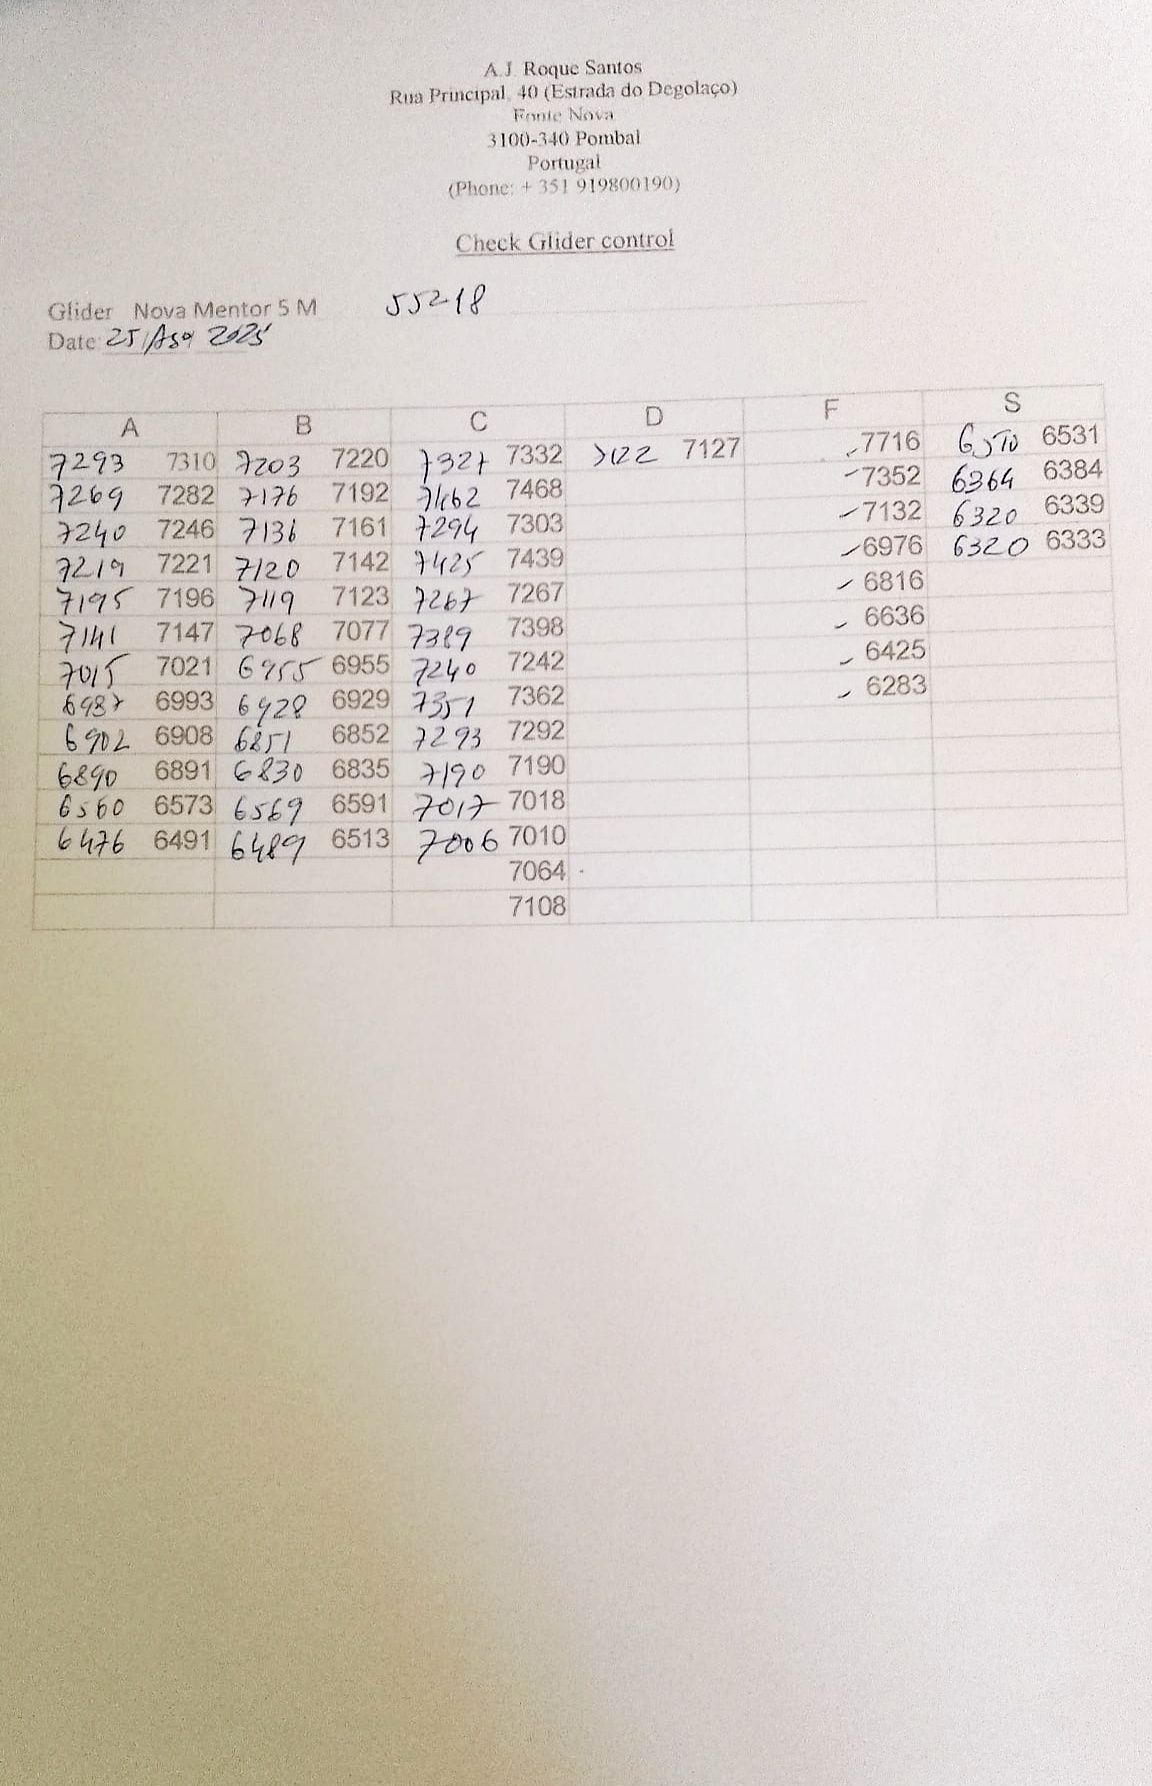 A.J. Roque Santos
Rua Principal, 40 (Estrada do Degolaço)
Fonte Nova
3100-340 Pombal
Portugal
(Phone: + 351 919800190)
Check Glider control
Glider Nova Mentor 5 M 55218
Date: 25/Ago 2025
A B C D F S
7293 7310 7203 7220 7327 7332 7122 7127 7716 6510 6531
7269 7282 7176 7192 7462 7468 7352 6364 6384
7240 7246 7136 7161 7294 7303 7132 6320 6339
7219 7221 7120 7142 7425 7439 6976 6320 6333
7195 7196 7119 7123 7267 7267 6816
7141 7147 7068 7077 7389 7398 6636
7015 7021 6955 6955 7240 7242 6425
6987 6993 6928 6929 7351 7362 6283
6902 6908 6851 6852 7293 7292
6890 6891 6830 6835 7190 7190
6560 6573 6569 6591 7017 7018
6476 6491 6489 6513 7006 7010
7064
7108